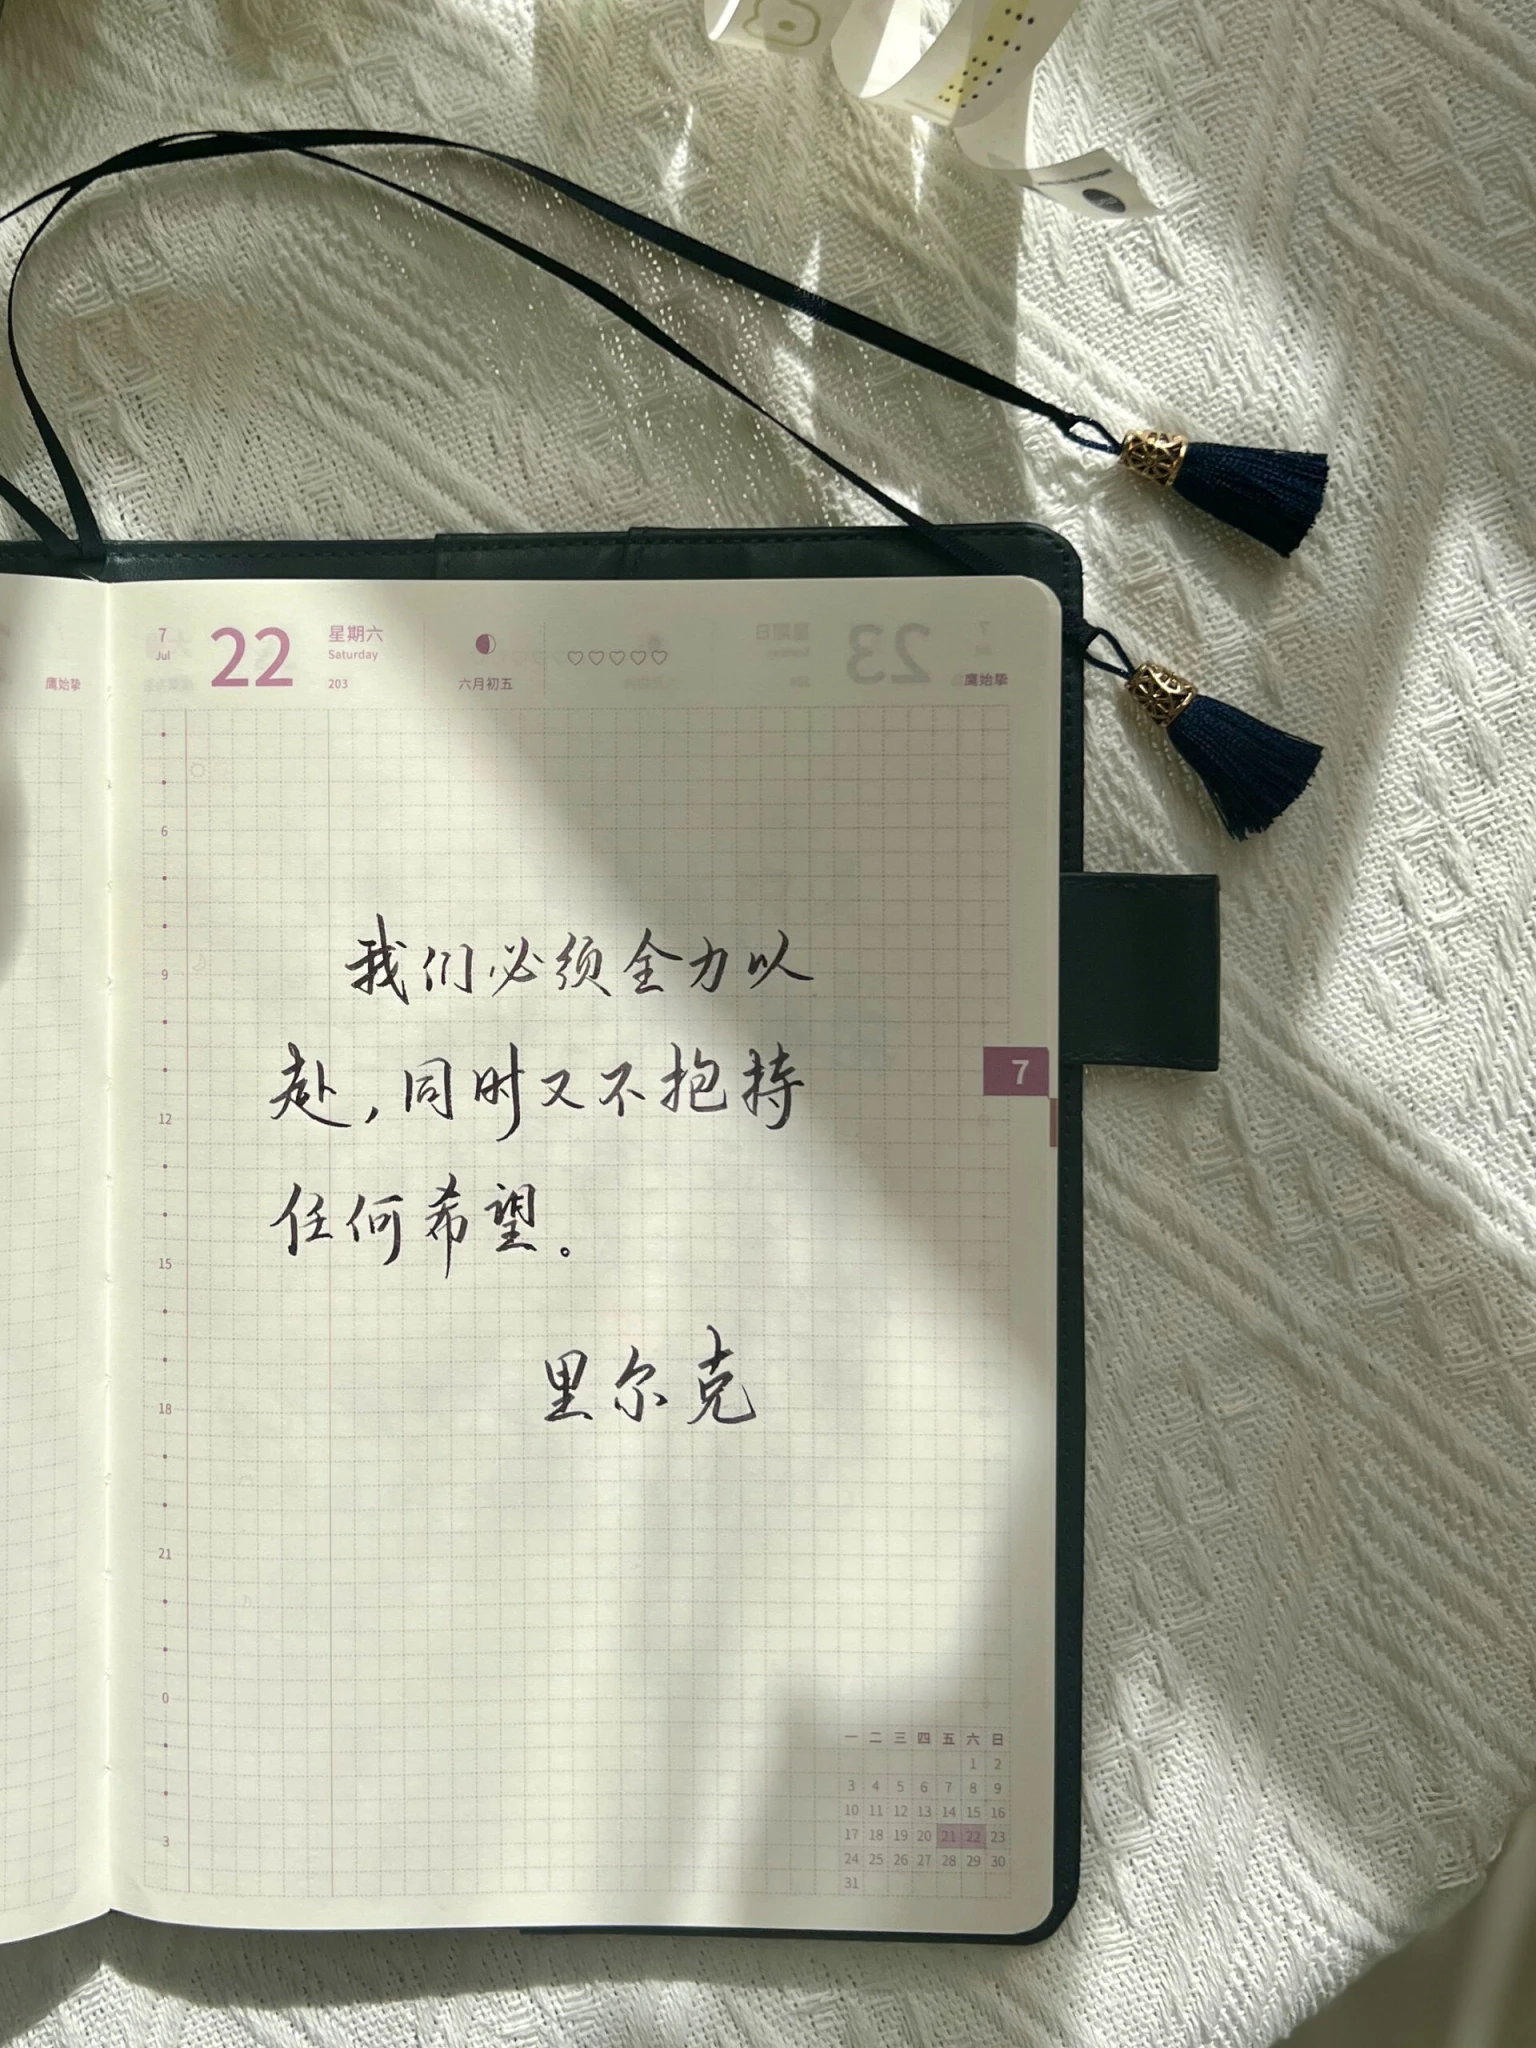 7
Jul
22
星期六
Saturday
203
六月初五
鹰始挚
鹰始挚
6
9
12
15
18
21
0
3
我们必须全力以
赴，同时又不抱持
任何希望。
里尔克
7
一 二 三 四 五 六 日
1 2
3 4 5 6 7 8 9
10 11 12 13 14 15 16
17 18 19 20 21 22 23
24 25 26 27 28 29 30
31